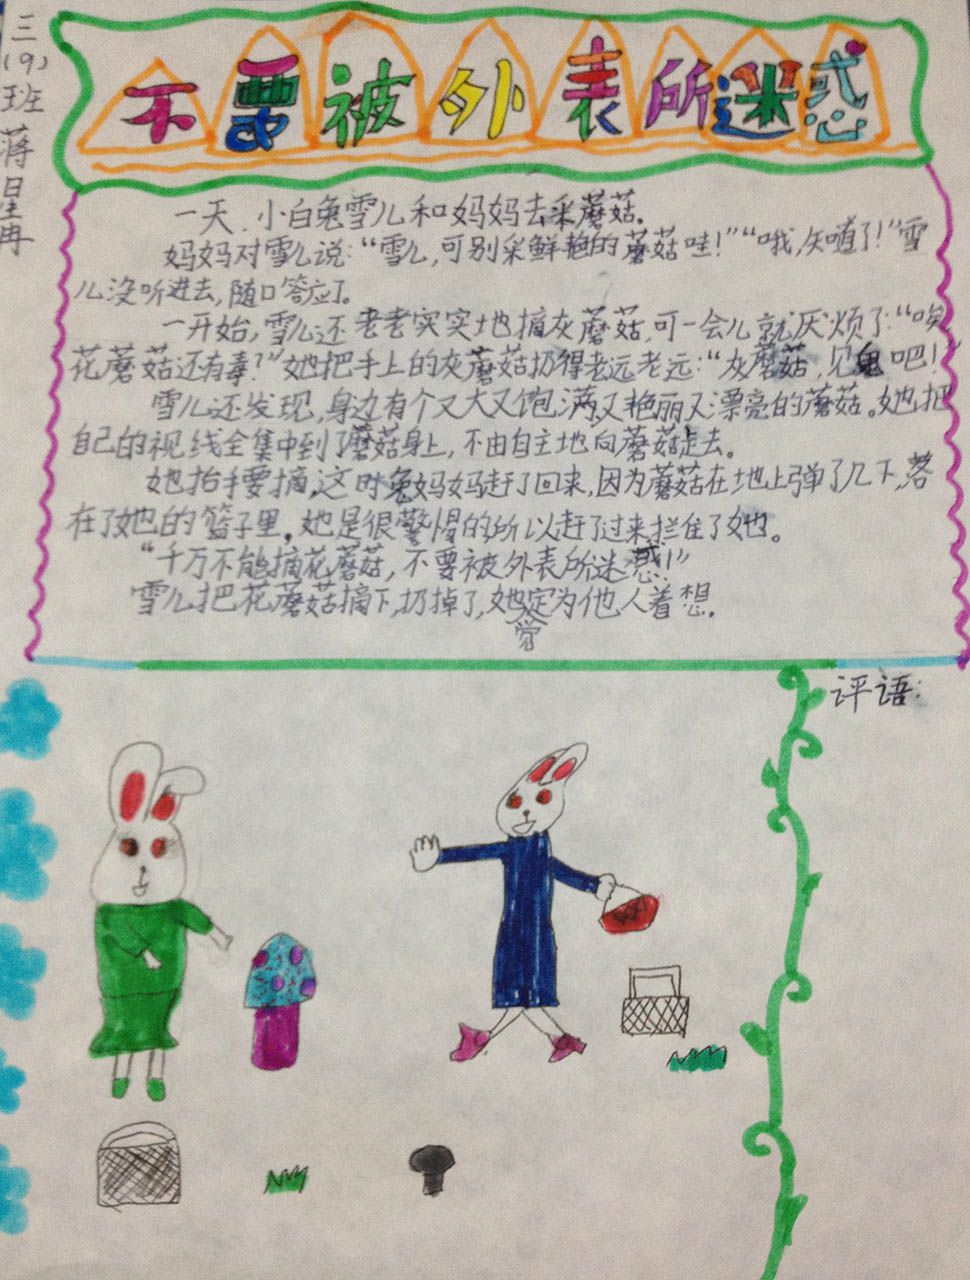 不要被外表所迷惑
三(9)班 蒋星冉
一天,小白兔雪儿和妈妈去采蘑菇.
妈妈对雪儿说:“雪儿,可别采鲜艳的蘑菇哇!”“哦,知道了!”雪
儿没听进去,随口答应了。
一开始,雪儿还老老实实地摘灰蘑菇,可一会儿就厌烦了:“唉
花蘑菇还有毒?”她把手上的灰蘑菇扔得老远老远:“灰蘑菇,见鬼吧!”
雪儿还发现,身边有个又大又饱满又艳丽又漂亮的蘑菇。她把
自己的视线全集中到了蘑菇身上,不由自主地向蘑菇走去。
她抬手要摘,这时兔妈妈赶了回来,因为蘑菇在地上弹了几下,落
在了她的篮子里。她是很警惕的所以赶了过来拦住了她。
“千万不能摘花蘑菇,不要被外表所迷惑!”
雪儿把花蘑菇摘下,扔掉了,她定为他人着想.
觉
评语: